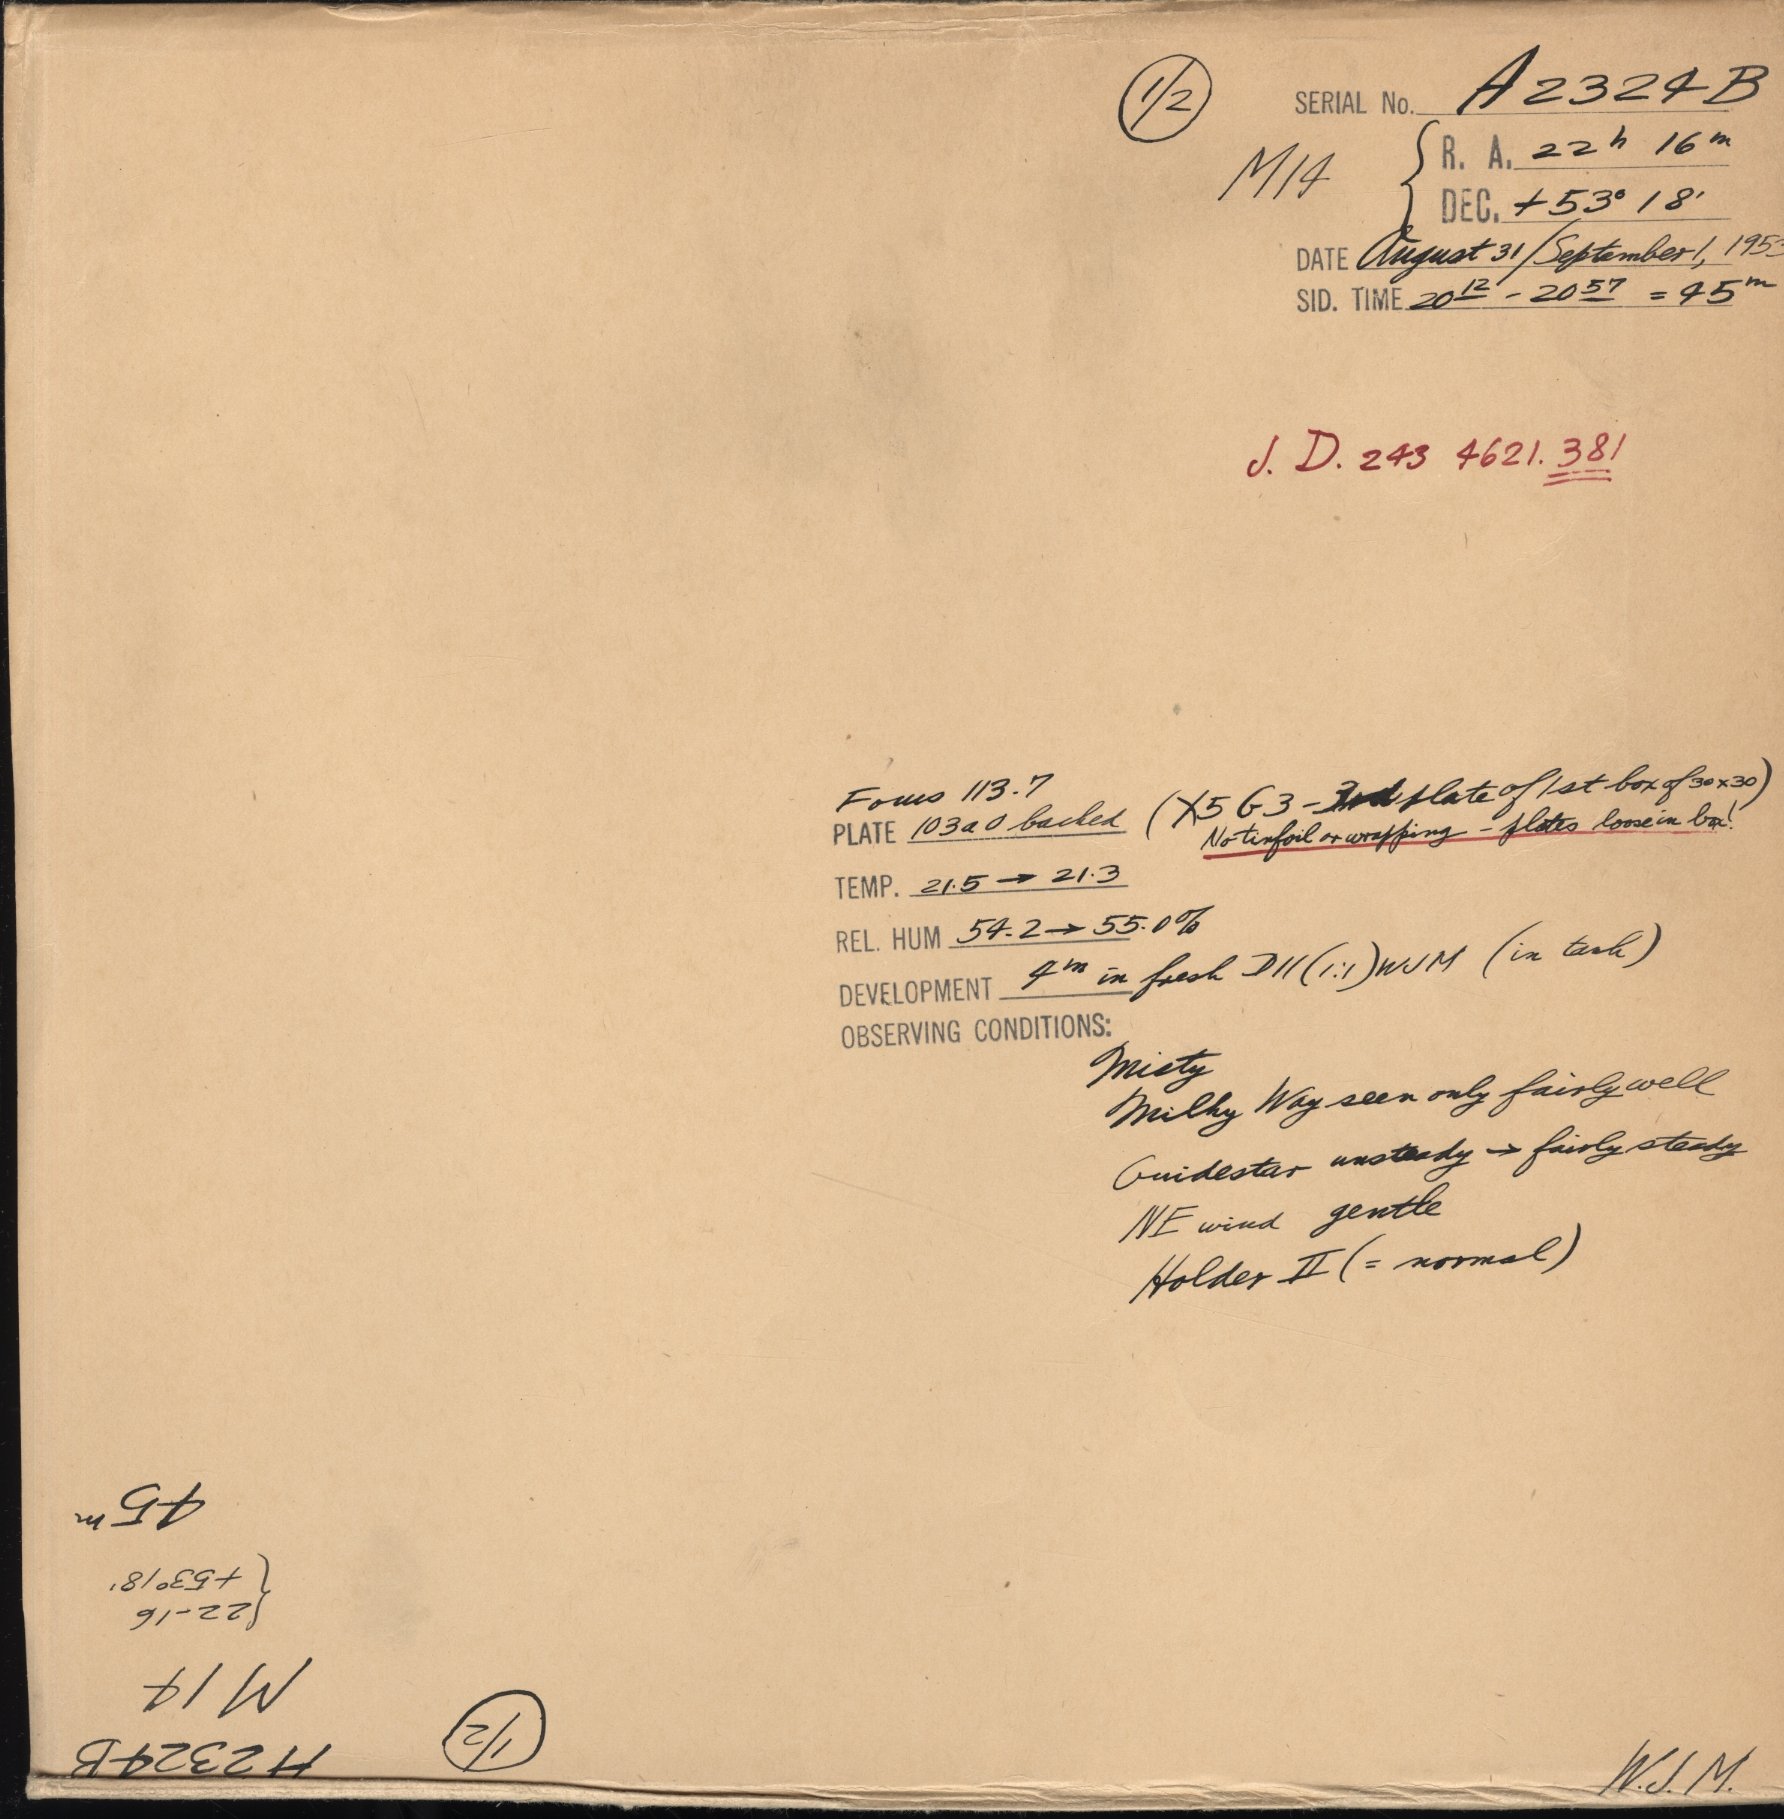 1/2
SERIAL No. A2324B
M14
R. A. 22h 16m
DEC. +53° 18'
DATE August 31/September 1, 1953
SID. TIME 20 12 - 20 57 = 45m
J. D. 243 4621.381
Focus 113.7
PLATE 103a0 backed (X5G3 - 3rd plate of 1st box of 30x30)
No tinfoil or wrapping - plates loose in box!
TEMP. 21.5 → 21.3
REL. HUM 54.2 → 55.0%
DEVELOPMENT 4m in fresh D11 (1:1) WJM (in tank)
OBSERVING CONDITIONS:
Misty
Milky Way seen only fairly well
Guidestar unsteady → fairly steady
NE wind gentle
Holder II (= normal)
W.J.M.
1/2
A2324B
M14
22-16
+53°18'
45m